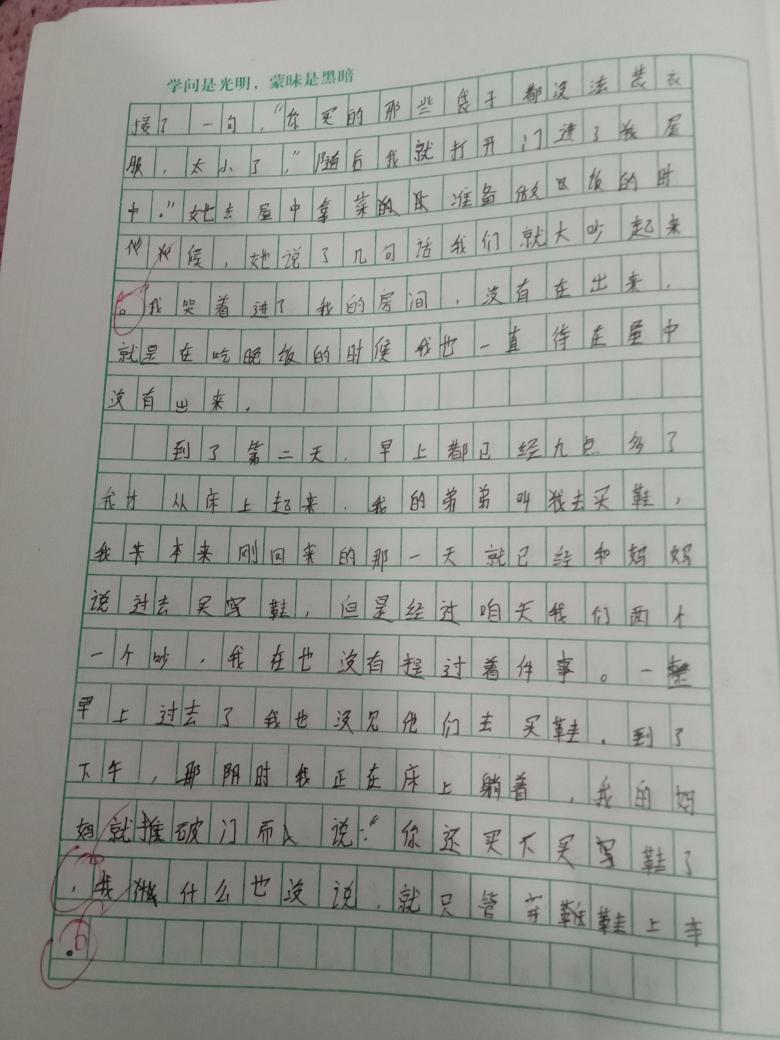 学问是光明，蒙昧是黑暗
接了一句，“你买的那些袋子都没法装衣
服，太小了，”随后我就打开门进了我屋
中。”她去屋中拿菜的 准备做 饭的时
候，她说了几句话我们就大吵起来
。我哭着进了我的房间，没有在出来．
就是在吃晚饭的时候我也一直待在屋中
没有出来．
到了第二天．早上都已经九点多了
我才从床上起来．我的弟弟叫我去买鞋，
我 本来刚回来的那一天就已经和妈妈
说过去买 鞋，但是经过咱天我们两个
一个吵．我在也没有提过着件事。一整
早上过去了我也没见他们去买鞋．到了
下午，那阴时我正在床上躺着，我的妈
妈就推破门而入说：“你还买不买 鞋了
，我 什么也没说．就只管穿 鞋上车
。